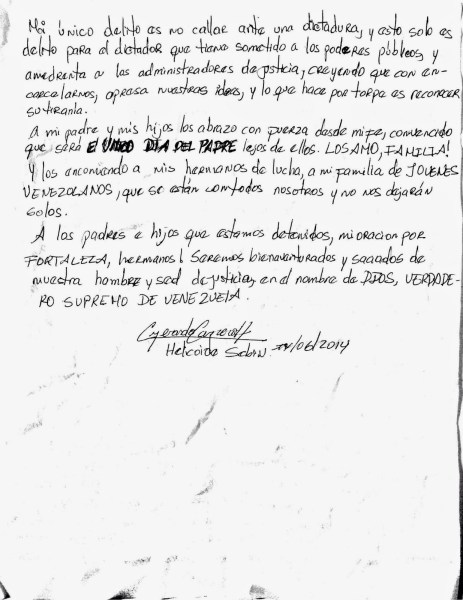 Mi único delito es no callar ante una dictadura, y esto solo es
delito para el dictador que tiene sometido a los poderes públicos, y
amedrenta a los administradores de justicia, creyendo que con en-
carcelarnos, apresa nuestras ideas, y lo que hace por torpe es reconocer
su tiranía.
A mi padre y mis hijos los abrazo con fuerza desde mi fe, convencido
que será EL UNICO DIA DEL PADRE lejos de ellos. LOS AMO, FAMILIA!
Y los encomiendo a mis hermanos de lucha, a mi familia de JOVENES
VENEZOLANOS, que se están com todos nosotros y no nos dejarán
solos.
A los padres e hijos que estamos detenidos, mi oracion por
FORTALEZA, hermanos! Seremos bienaventurados y saciados de
nuestra hambre y sed de justicia, en el nombre de DIOS, VERDADE-
RO SUPREMO DE VENEZUELA.
Helicoide Sebin /06/2014